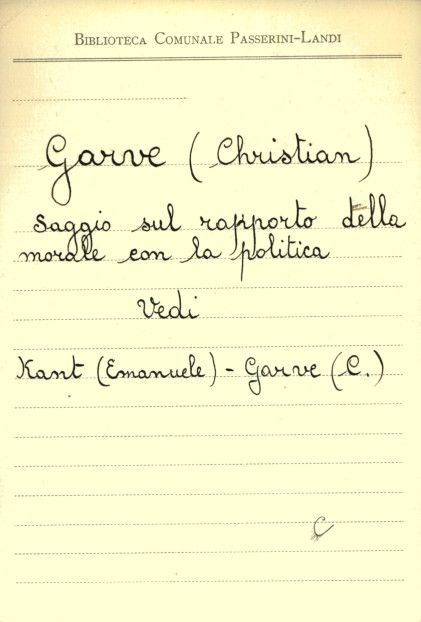 Biblioteca Comunale Passerini-Landi
Garve (Christian)
Saggio sul rapporto della
morale con la politica
Vedi
Kant (Emanuele) - Garve (C.)
C